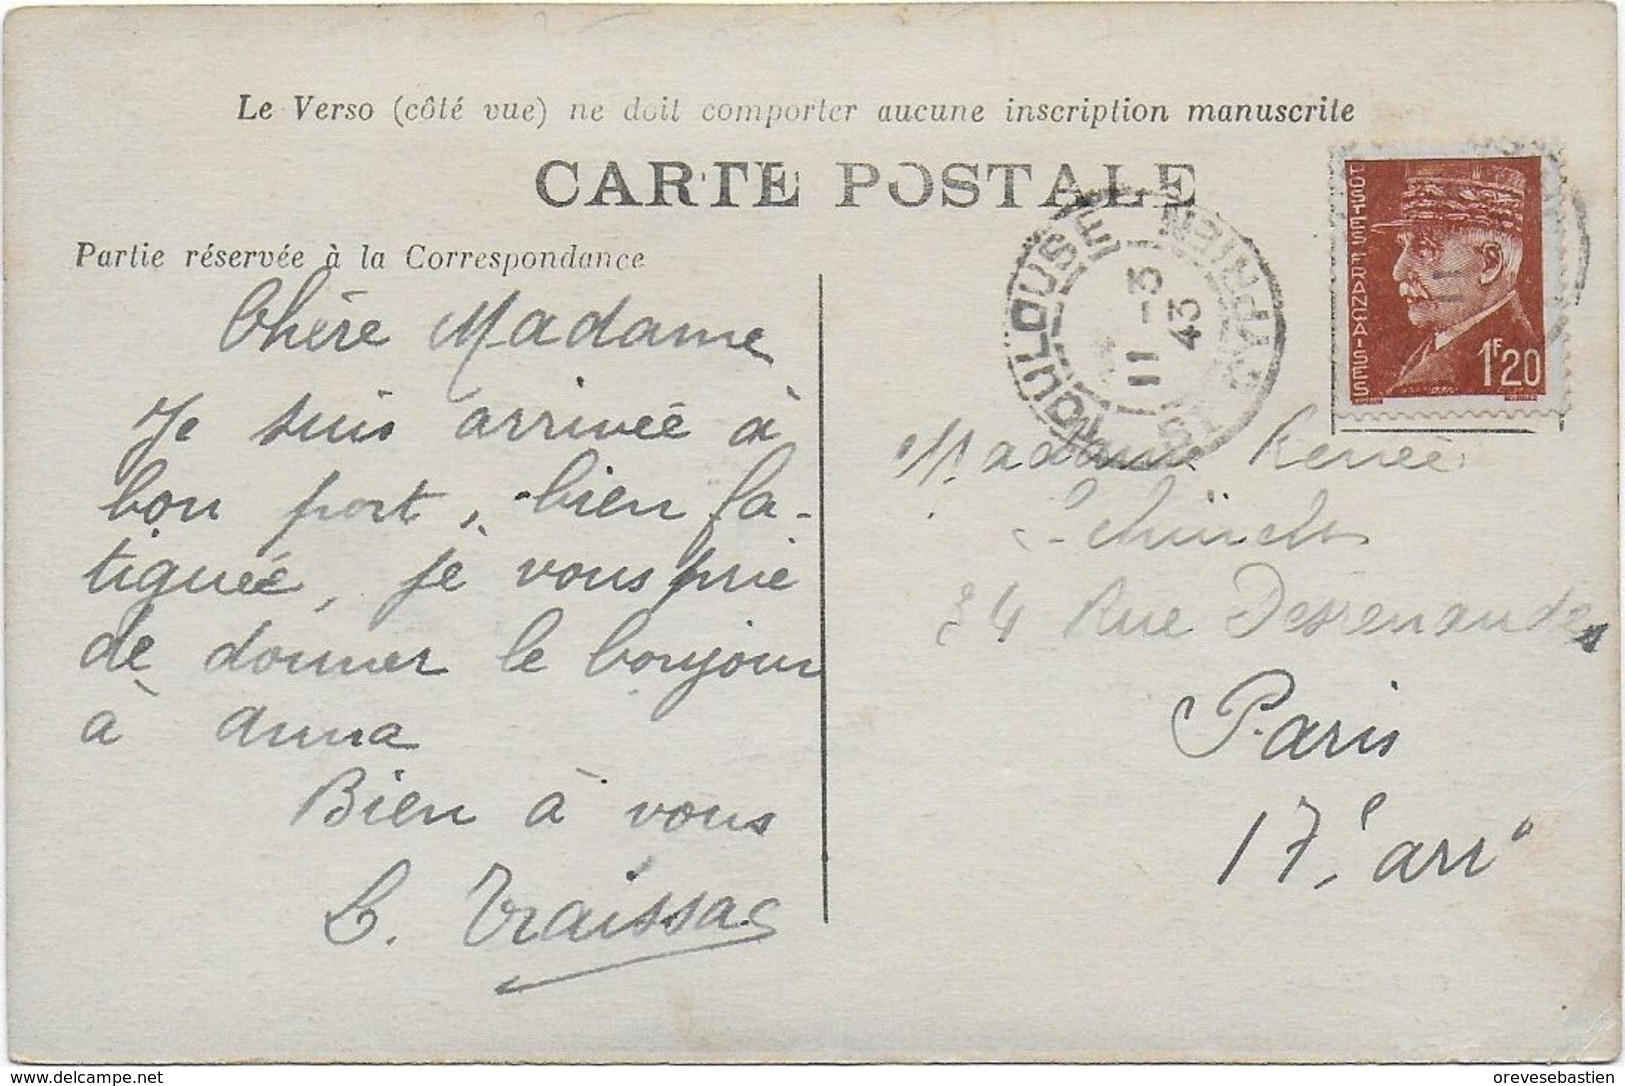 Le Verso (côté vue) ne doit comporter aucune inscription manuscrite
CARTE POSTALE
Partie réservée à la Correspondance
Chère Madame
Je suis arrivée à
bon port, bien fa-
tiguée, je vous prie
de donner le bonjour
à Anna
Bien à vous
Traissac
TOULOUSE
11 - 3
43
POSTES FRANÇAISES
1F20
Madame Renée
34 Rue Desrenaudes
Paris
17e arr
delcampe.net
orevesebastien